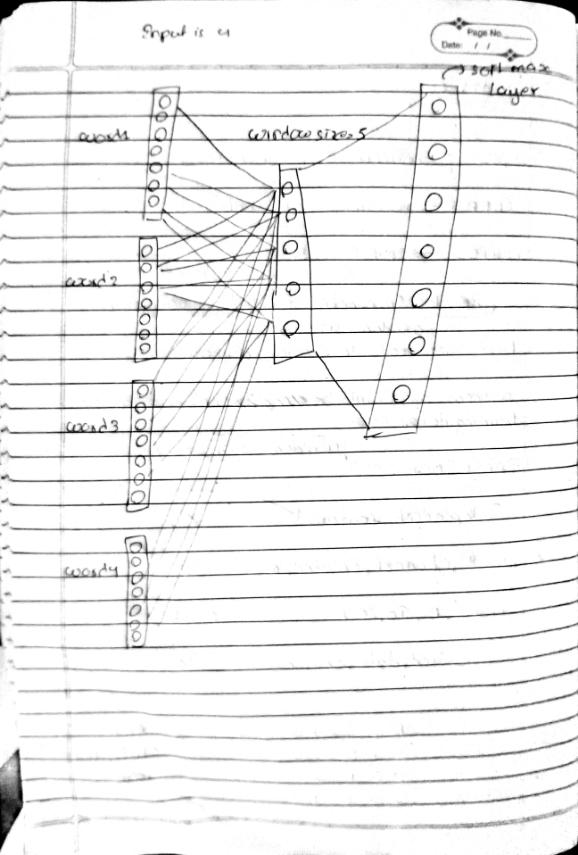 Input is 4
Page No.
Date: / /
soft max
layer
word1
window size=5
word2
word3
word4